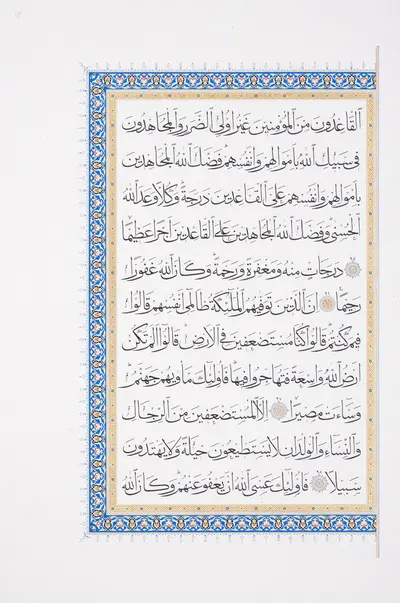 القاعدون من المؤمنين غير اولى الضرر والمجاهدون
فى سبيل الله باموالهم وانفسهم فضل الله المجاهدين
باموالهم وانفسهم على القاعدين درجة وكلا وعد الله
الحسنى وفضل الله المجاهدين على القاعدين اجرا عظيما
درجات منه ومغفرة ورحمة وكان الله غفورا
رحيما ان الذين توفيهم الملئكة ظالمى انفسهم قالوا
فيم كنتم قالوا كنا مستضعفين فى الارض قالوا الم تكن
ارض الله واسعة فتهاجروا فيها فاولئك ماويهم جهنم
وساءت مصيرا الا المستضعفين من الرجال
والنساء والولدان لا يستطيعون حيلة ولا يهتدون
سبيلا فاولئك عسى الله ان يعفو عنهم وكان الله